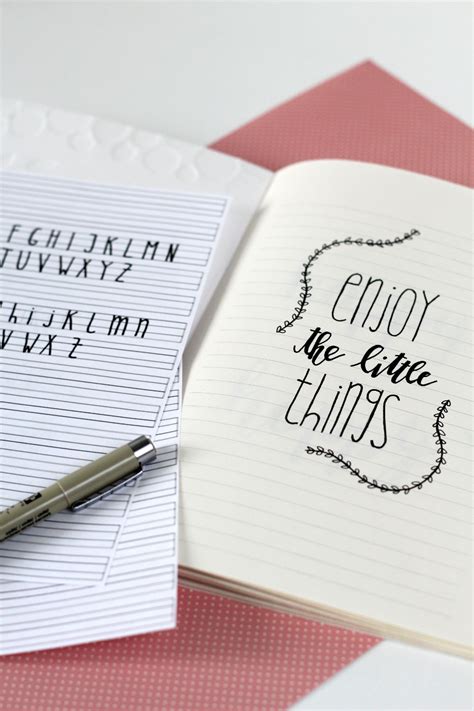 FGHIJKLMN
TUVWXYZ
hijklmn
vwxz
enjoy
the little
things